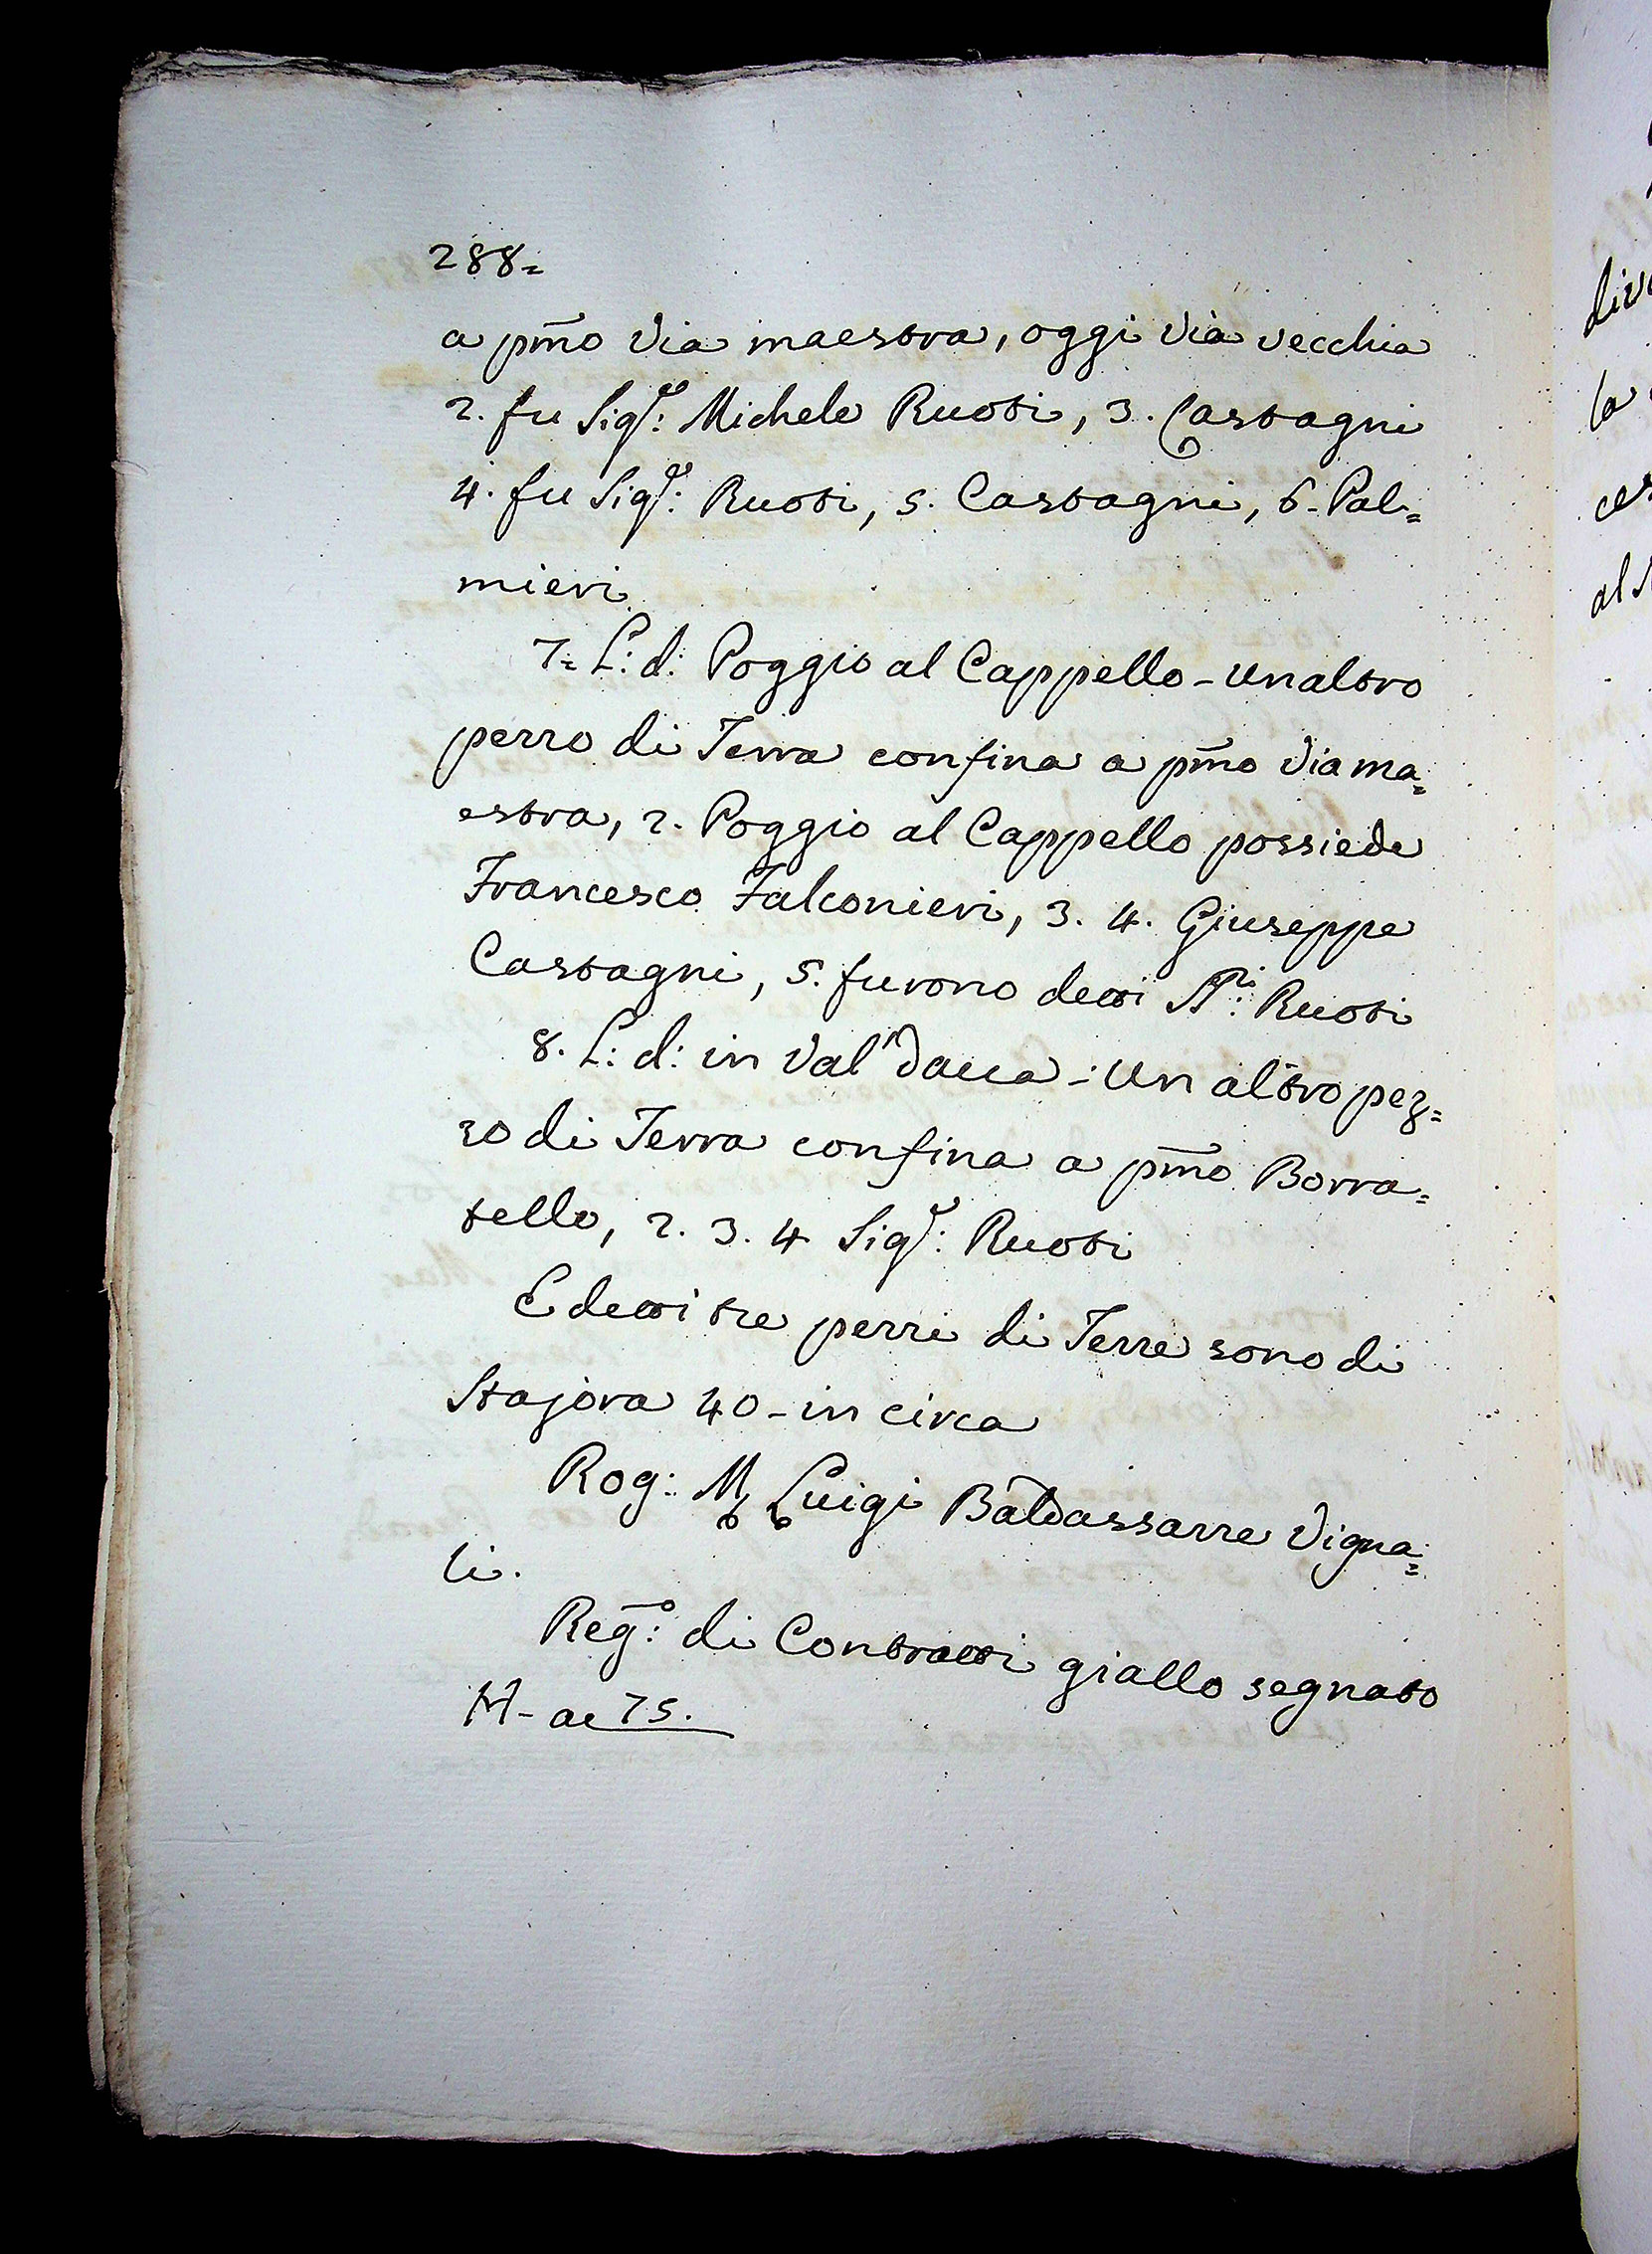 288=
a pmõ Via maestra, oggi Via vecchia
2. fu Sigr: Michele Ruoti, 3. Castagni
4. fu Sigr: Ruoti, 5. Castagni, 6. Pal=
mieri
7= L: d: Poggio al Cappello - un altro
pezzo di Terra confina a pmõ Via ma=
estra, 2. Poggio al Cappello possiede
Francesco Falconieri, 3. 4. Giuseppe
Castagni, 5. furono detti SSri: Ruoti
8. L: d: in Val' - Un altro pez=
zo di Terra confina a pmõ Borra=
tello, 2. 3. 4 Sigr: Ruoti
E detti tre pezzi di Terre sono di
Stajora 40 - in circa
Rog: Luigi Baldassarre Vigna=
li.
Rego: di Contratti giallo segnato
75.
div
la
ces
al